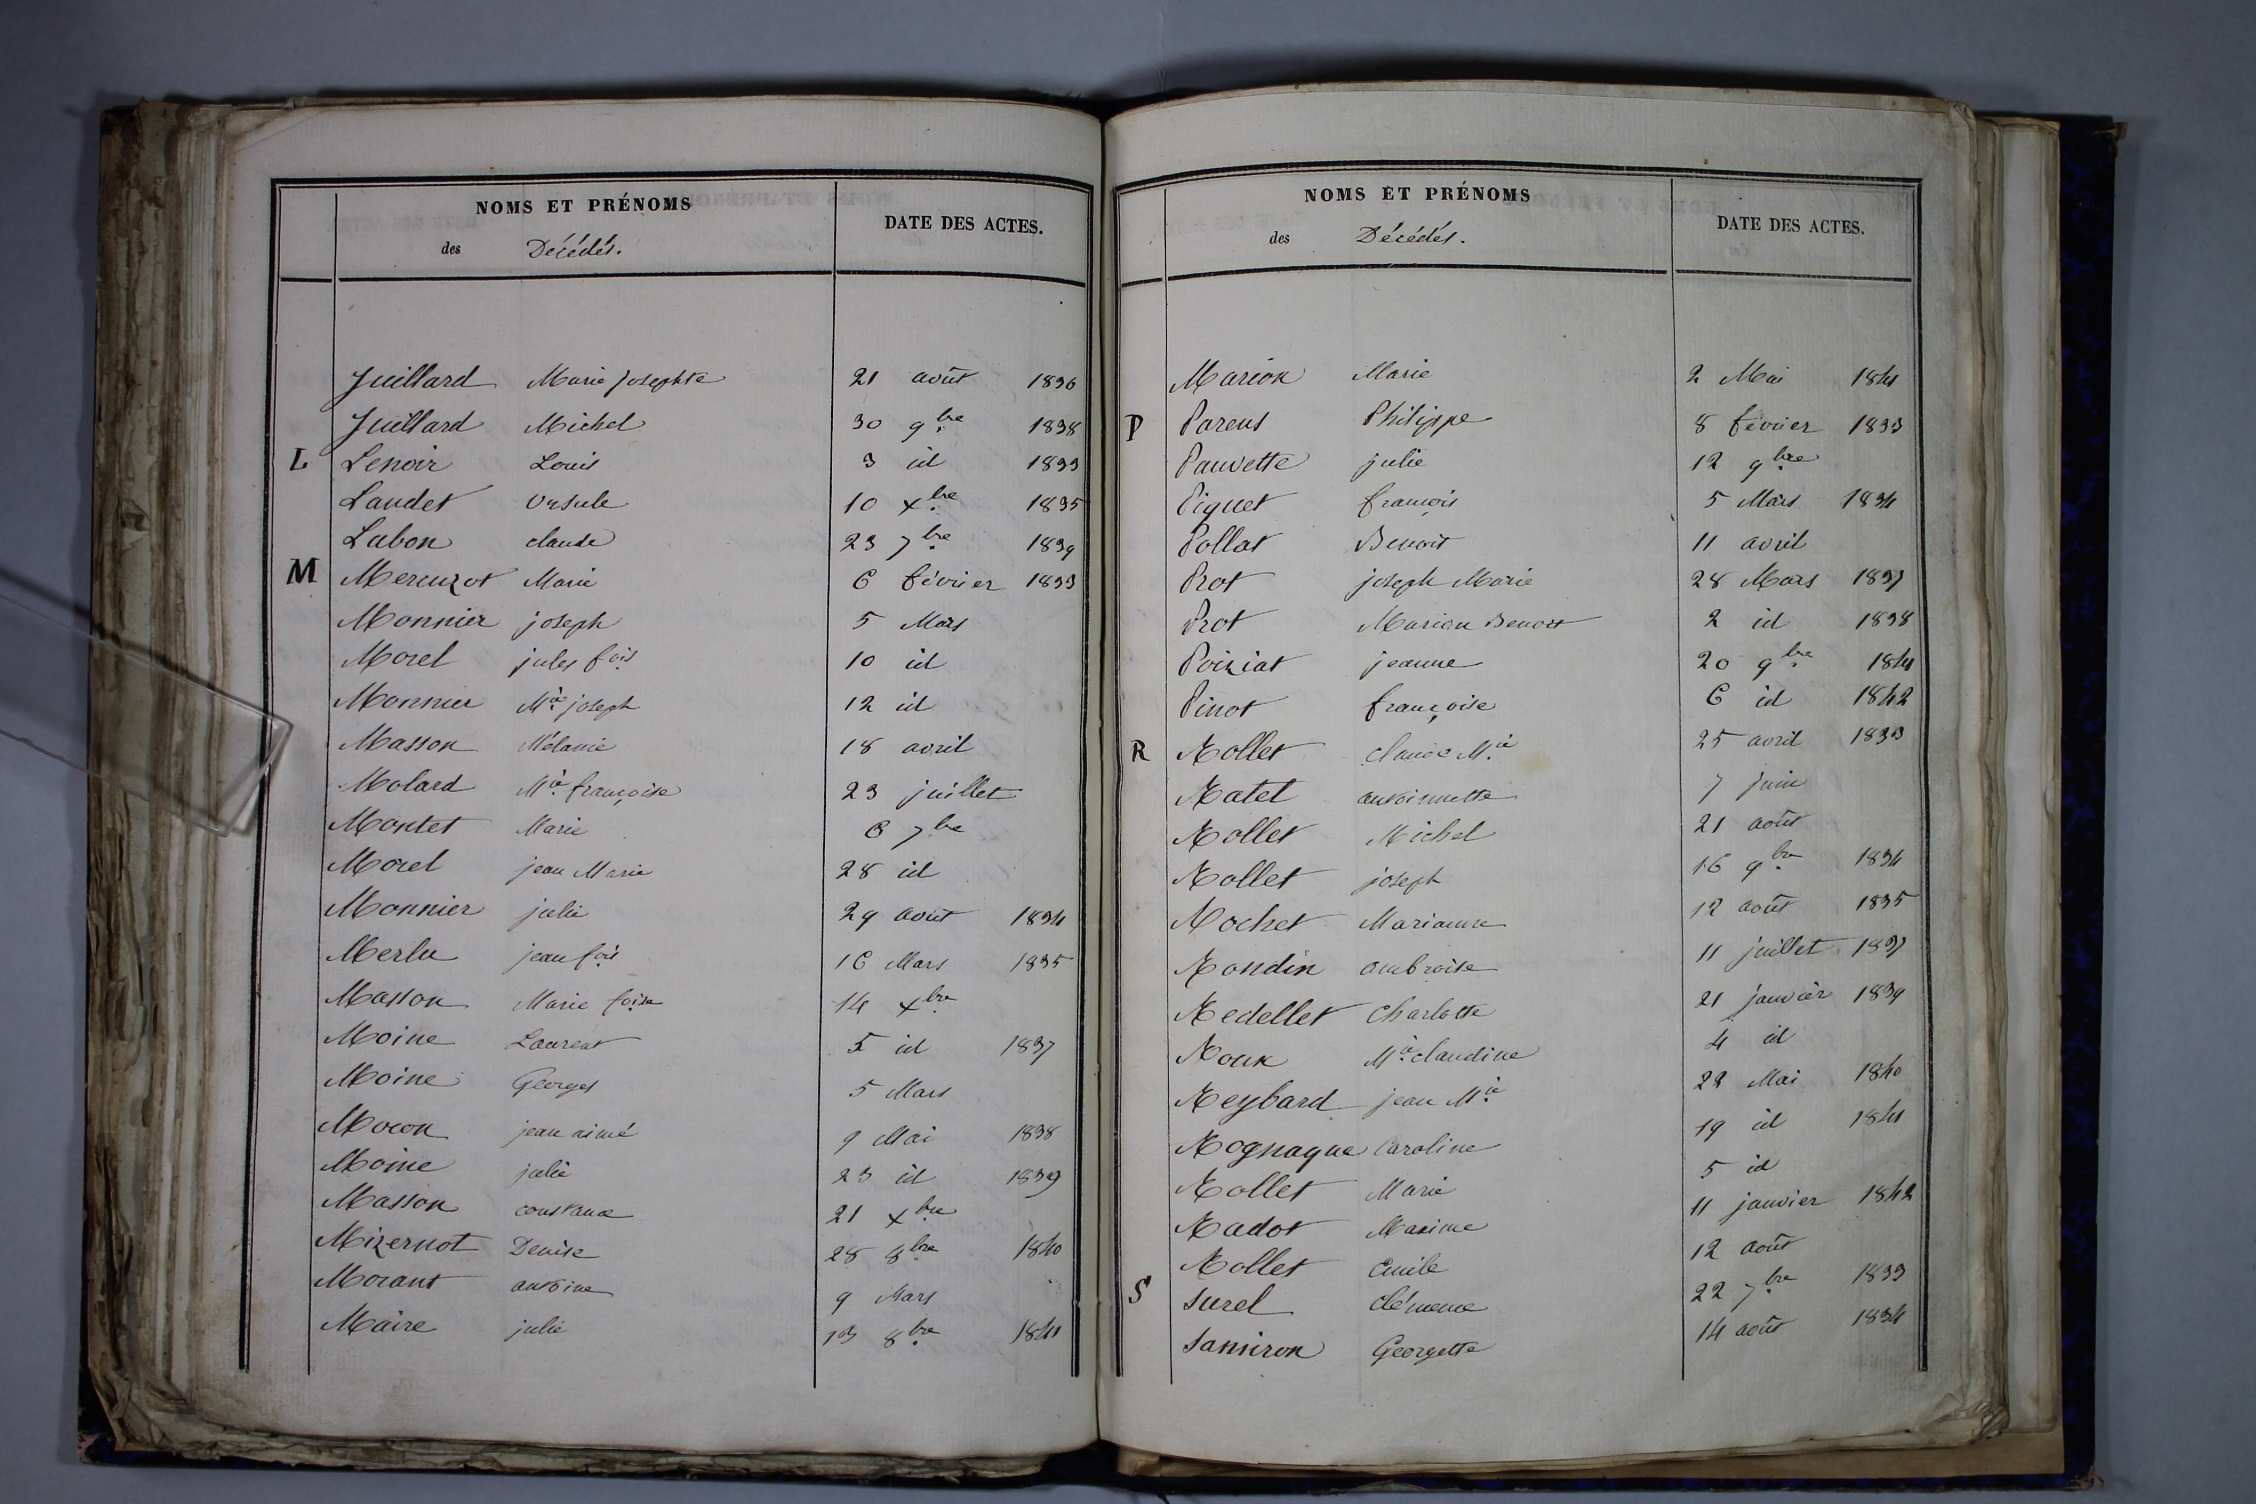 NOMS ET PRÉNOMS
DATE DES ACTES.
des Décédés.
Juillard Marie Josephte 21 août 1836
Juillard Michel 30 9bre 1838
L Lenoir Louis 3 id 1833
Laudet Ursule 10 xbre 1835
Labon claude 23 7bre 1839
M Mereuzot Marie 6 février 1833
Monnier joseph 5 Mars
Morel jules fois 10 id
Monnier Mie joseph 12 id
Masson Mélanie 18 avril
Molard Mie françoise 23 juillet
Montet Marie 6 7bre
Morel jean Marie 28 id
Monnier julie 29 août 1834
Merlu jean fois 16 Mars 1835
Masson Marie foise 14 xbre
Moine Laurent 5 id 1837
Moine Georges 5 Mars
Mocon jean aimé 9 Mai 1838
Moine julie 23 id 1839
Masson constance 21 xbre
Mizernot Denise 28 8bre 1840
Morant antoine 9 Mars
Maire julie 13 8bre 1841
NOMS ET PRÉNOMS
DATE DES ACTES.
des Décédés.
Marion Marie 2 Mai 1841
P Parent Philippe 8 février 1833
Pauvette julie 12 9bre
Piquet françois 5 Mars 1834
Pollat Benoit 11 avril
Prot joseph Marie 28 Mars 1837
Prot Marieu Benoit 2 id 1838
Poiziat jeanne 20 9bre 1841
Pinot françoise 6 id 1842
R Rollet claude Mie 25 avril 1833
Ratet antoinette 7 juin
Rollet Michel 21 août
Rollet joseph 16 9bre 1834
Rochet Marianne 12 août 1835
Rondin ambroise 11 juillet 1837
Redellet Charlotte 21 janvier 1839
Roux Mie claudine 4 id
Reybard jean Mie 22 Mai 1840
Rognaque Caroline 19 id 1841
Rollet Marie 5 id
Radot Maxime 11 janvier 1842
Rollet Emile 12 août
S Surel clémence 22 7bre 1833
Samiron Georgette 14 août 1834